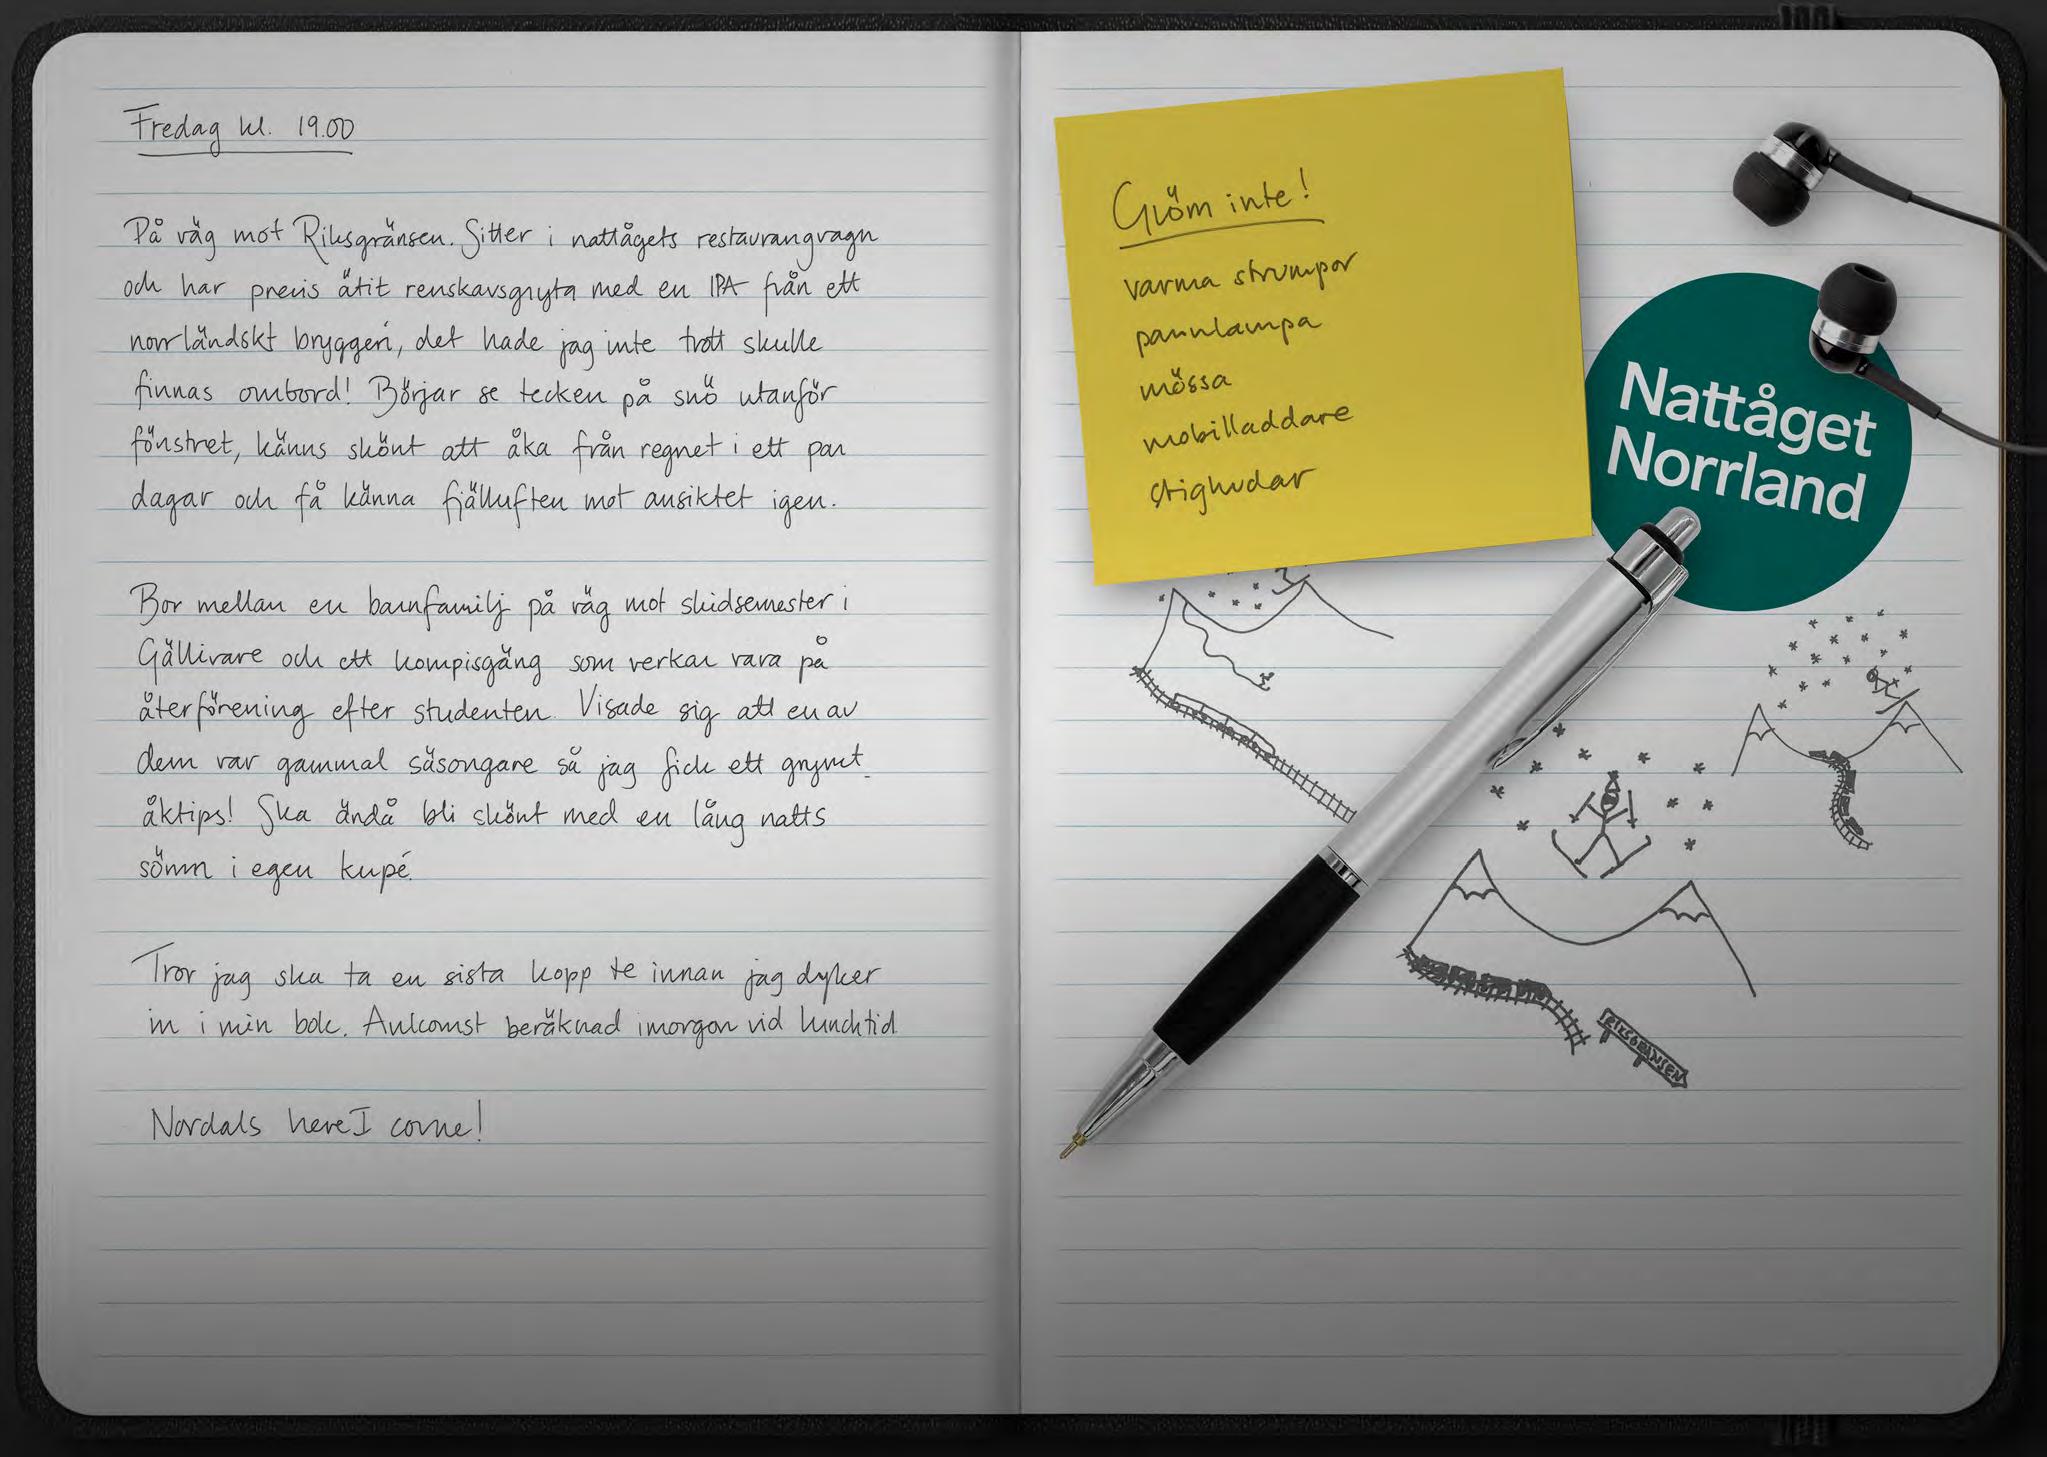 Fredag kl. 19.00
På väg mot Riksgränsen. Sitter i nattågets restaurangvagn
och har precis ätit renskavsgryta med en IPA från ett
norrländskt bryggeri, det hade jag inte trott skulle
finnas ombord! Börjar se tecken på snö utanför
fönstret, känns skönt att åka från regnet i ett par
dagar och få känna fjälluften mot ansiktet igen.
Bor mellan en barnfamilj på väg mot skidsemester i
Gällivare och ett kompisgäng som verkar vara på
återförening efter studenten. Visade sig att en av
dem var gammal säsongare så jag fick ett grymt
åktips! Ska ändå bli skönt med en lång natts
sömn i egen kupé.
Tror jag ska ta en sista kopp te innan jag dyker
in i min bok. Ankomst beräknad imorgon vid lunchtid
Nordals here I come!
Glöm inte!
varma strumpor
pannlampa
mössa
mobilladdare
stighudar
Nattåget
Norrland
RIKSGRÄNSEN